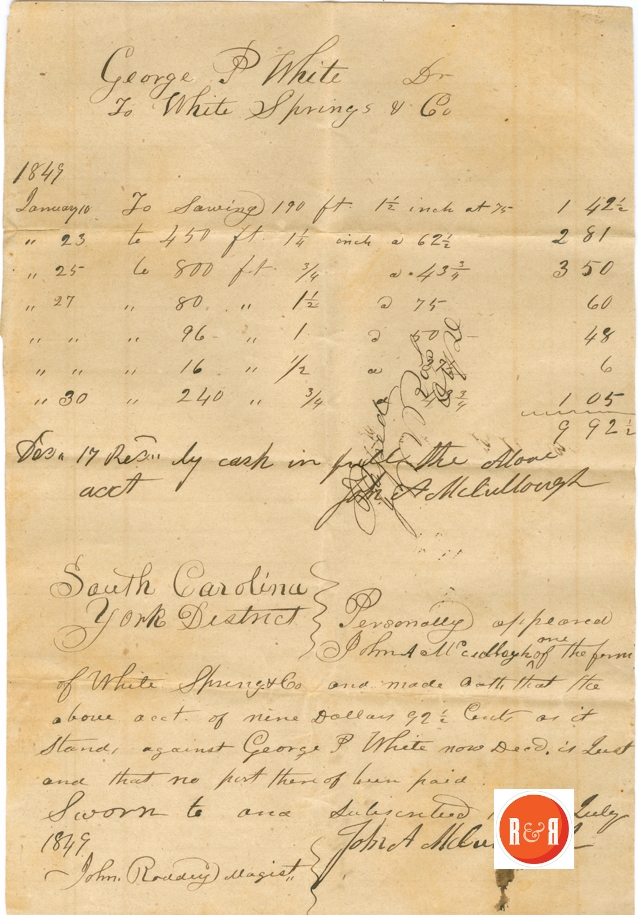 George P White Dr
To White Springs & Co
1849
January 10 To Sawing 190 ft 1½ inch at 75 1 42½
" 23 to 450 ft 1¼ inch a 62½ 2 81
" 25 to 800 ft ¾ a 43¾ 3 50
" 27 " 80 " 1½ a 75 60
" " " 96 " 1 a 50 48
" " " 16 " 1/2 a 6
" 30 " 240 " ¾ 1 05
9 92½
17 by cash in full the Above
acct John A McCullough
South Carolina
York District
Personally appeared
John A McCullough one of the firm
of White Spring & Co and made oath that the
above acct. of nine Dollars 92½ Cents as it
Stands against George P White now Dead. is Just
and that no part there of been paid
Sworn to and Subscribed July
1849 John A
John Roddey Magist
R&R